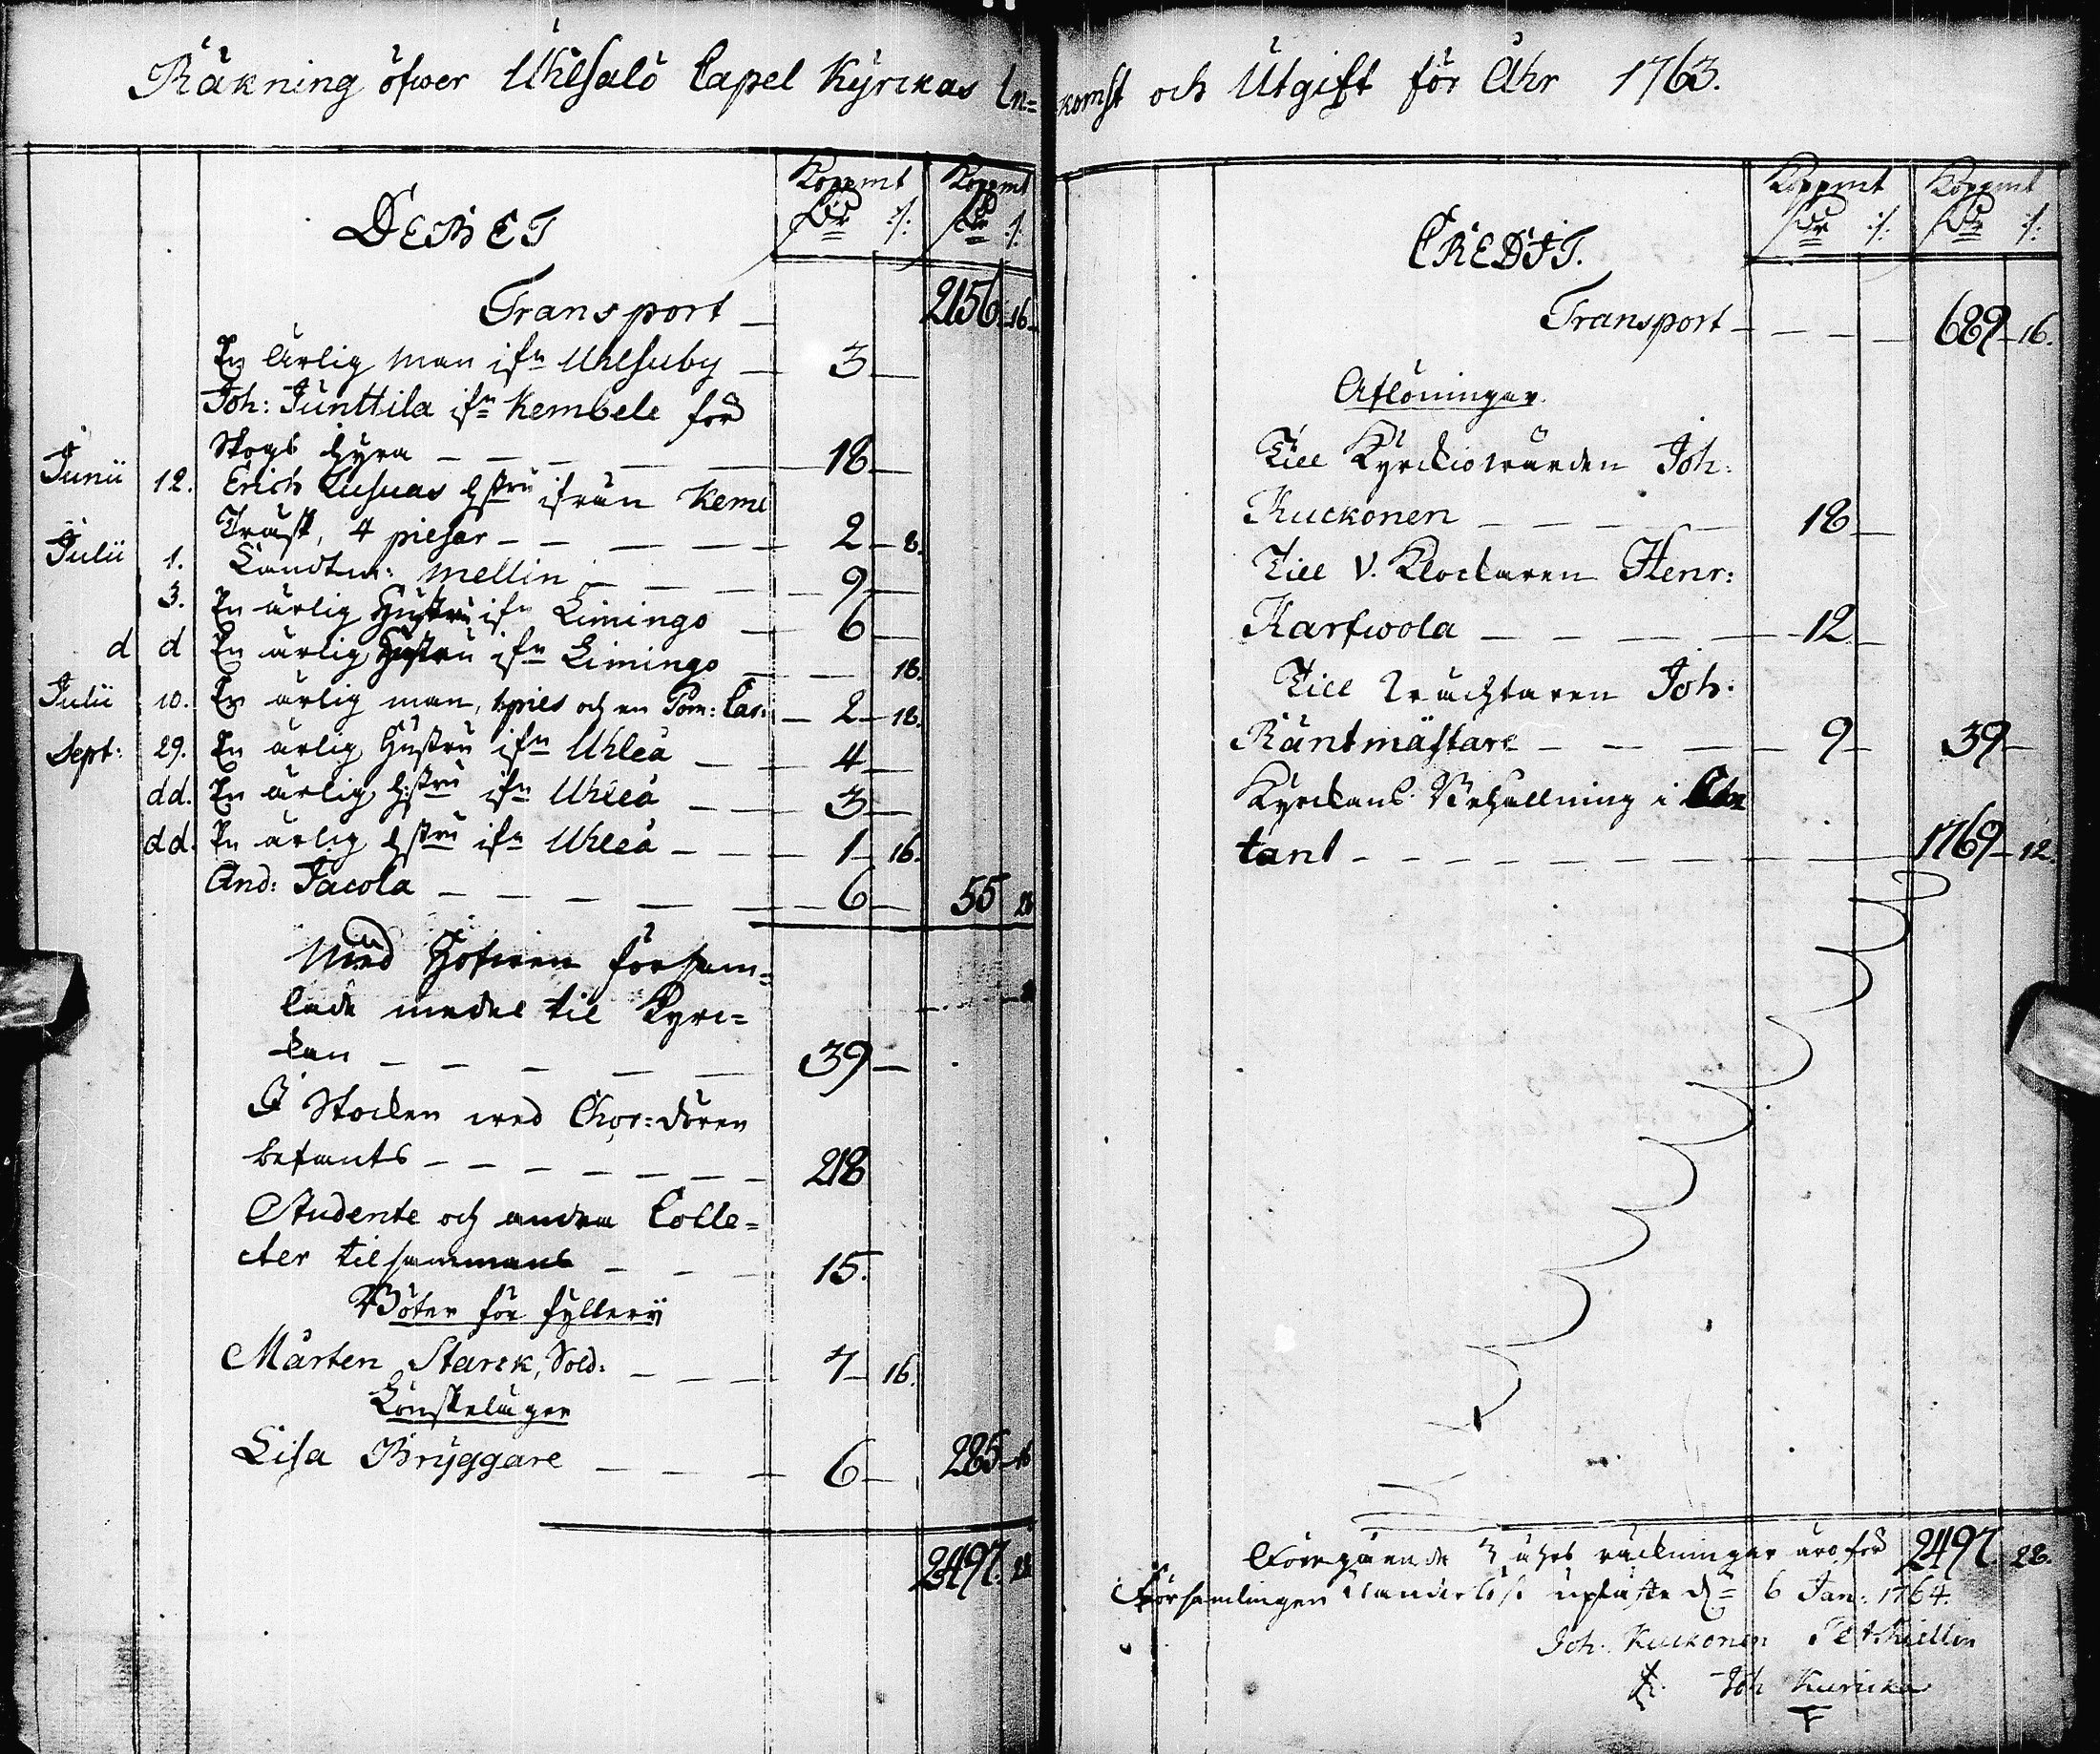 Räkning öfwer Uhlsalò Capel Kyrckas In=komst och Utgift för Åhr 1763.
DEBET
Koppmt Koppmt
Dr :/: Dr :/:
Transport — 2156 — 16 —
En Ärlig Man ifn Uhlsuby — 3 —
Joh: Junttila ifn Kembele för
Skogs hyra — — — — — 18 —
Junii 12. Erich Lusuas hstru ifrån Kemi
Träsk, 4 piesar — — — — — 2 — 8.
Julii 1. Landtm: Mellin — — — 9 —
3. En ärlig Hustru ifn Limingo — 6 —
d d En ärlig Hustru ifn Limingo — — 18.
Julii 10. En ärlig man, 1 pies och en Pom: Car: — 2 — 18.
Sept: 29. En ärlig Hustru ifn Uhleå — — 4 —
dd. En ärlig hstru ifn Uhleå — — 3 —
dd. En ärlig hstru ifn Uhleå — — — 1 — 16.
And: Jacola — — — — — — 6 — 55 28
Med Hofwen försam=
lade medel til Kyrc=
kan — — — — — 39 —
I Stocken wed Chor=dören
befants — — — — — — — 218
Studente och andra Colle=
cter tilsammans — — — 15.
Böter för fylleri
Mårten Starck, Sold: — — — 7 — 16.
Lönskeläger
Lisa Bryggare — — — — 6 — 285 — 16
2497. 28
CREDIT.
Koppmt Koppmt
Dr :/: Dr :/:
Transport — — — — 689 — 16.
Aflöningar
Till Kyrckiowärden Joh:
Kuckonen — — — — — 18 —
Till V. Klockaren Henr:
Karfwola — — — — — 12 —
Till Joh:
Räntmästare — — — — 9 — 39 —
Kyrckans Behållning i Con
tant — — — — — — — — — 1769 — 12.
Föregående 3 åhrs räckningar äro för 2497. 28.
Församlingen klanderlöst upläste dn 6 Jan: 1764.
Joh: Kuckonen Pet Kiellin
Joh Kuricka